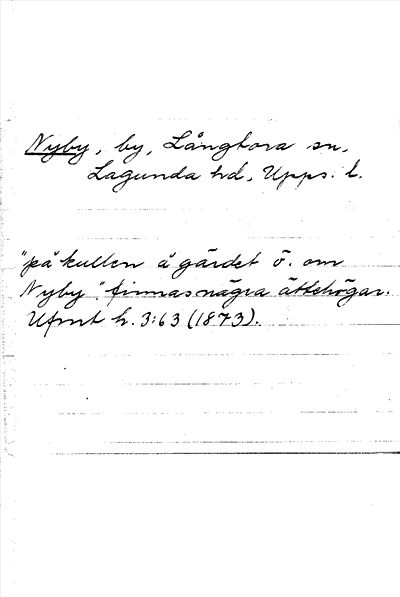 Nyby, by, Långtora sn,
Lagunda hd, Upps. l.
"på kullen å gärdet ö. om
Nyby". finnas några ättehögar.
Ufmt h. 3:63 (1873).